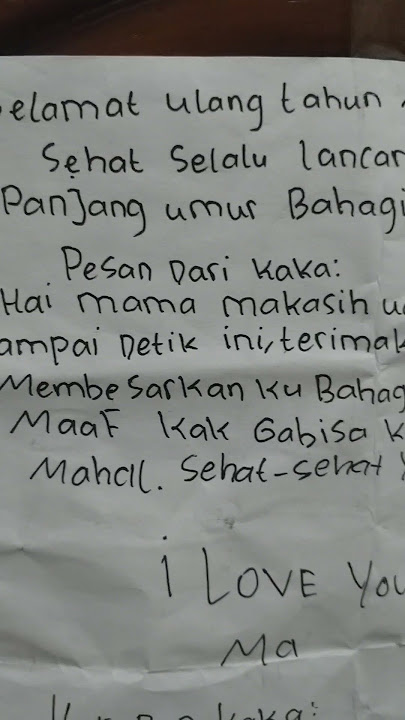 elamat ulang tahun
Sehat Selalu lancar
Panjang umur Bahagi
Pesan Dari kaka:
Hai mama makasih u
ampai Detik ini, terimak
Membesarkan ku Bahag
Maaf kak Gabisa k
Mahal. Sehat-sehat
i LOVE You
Ma